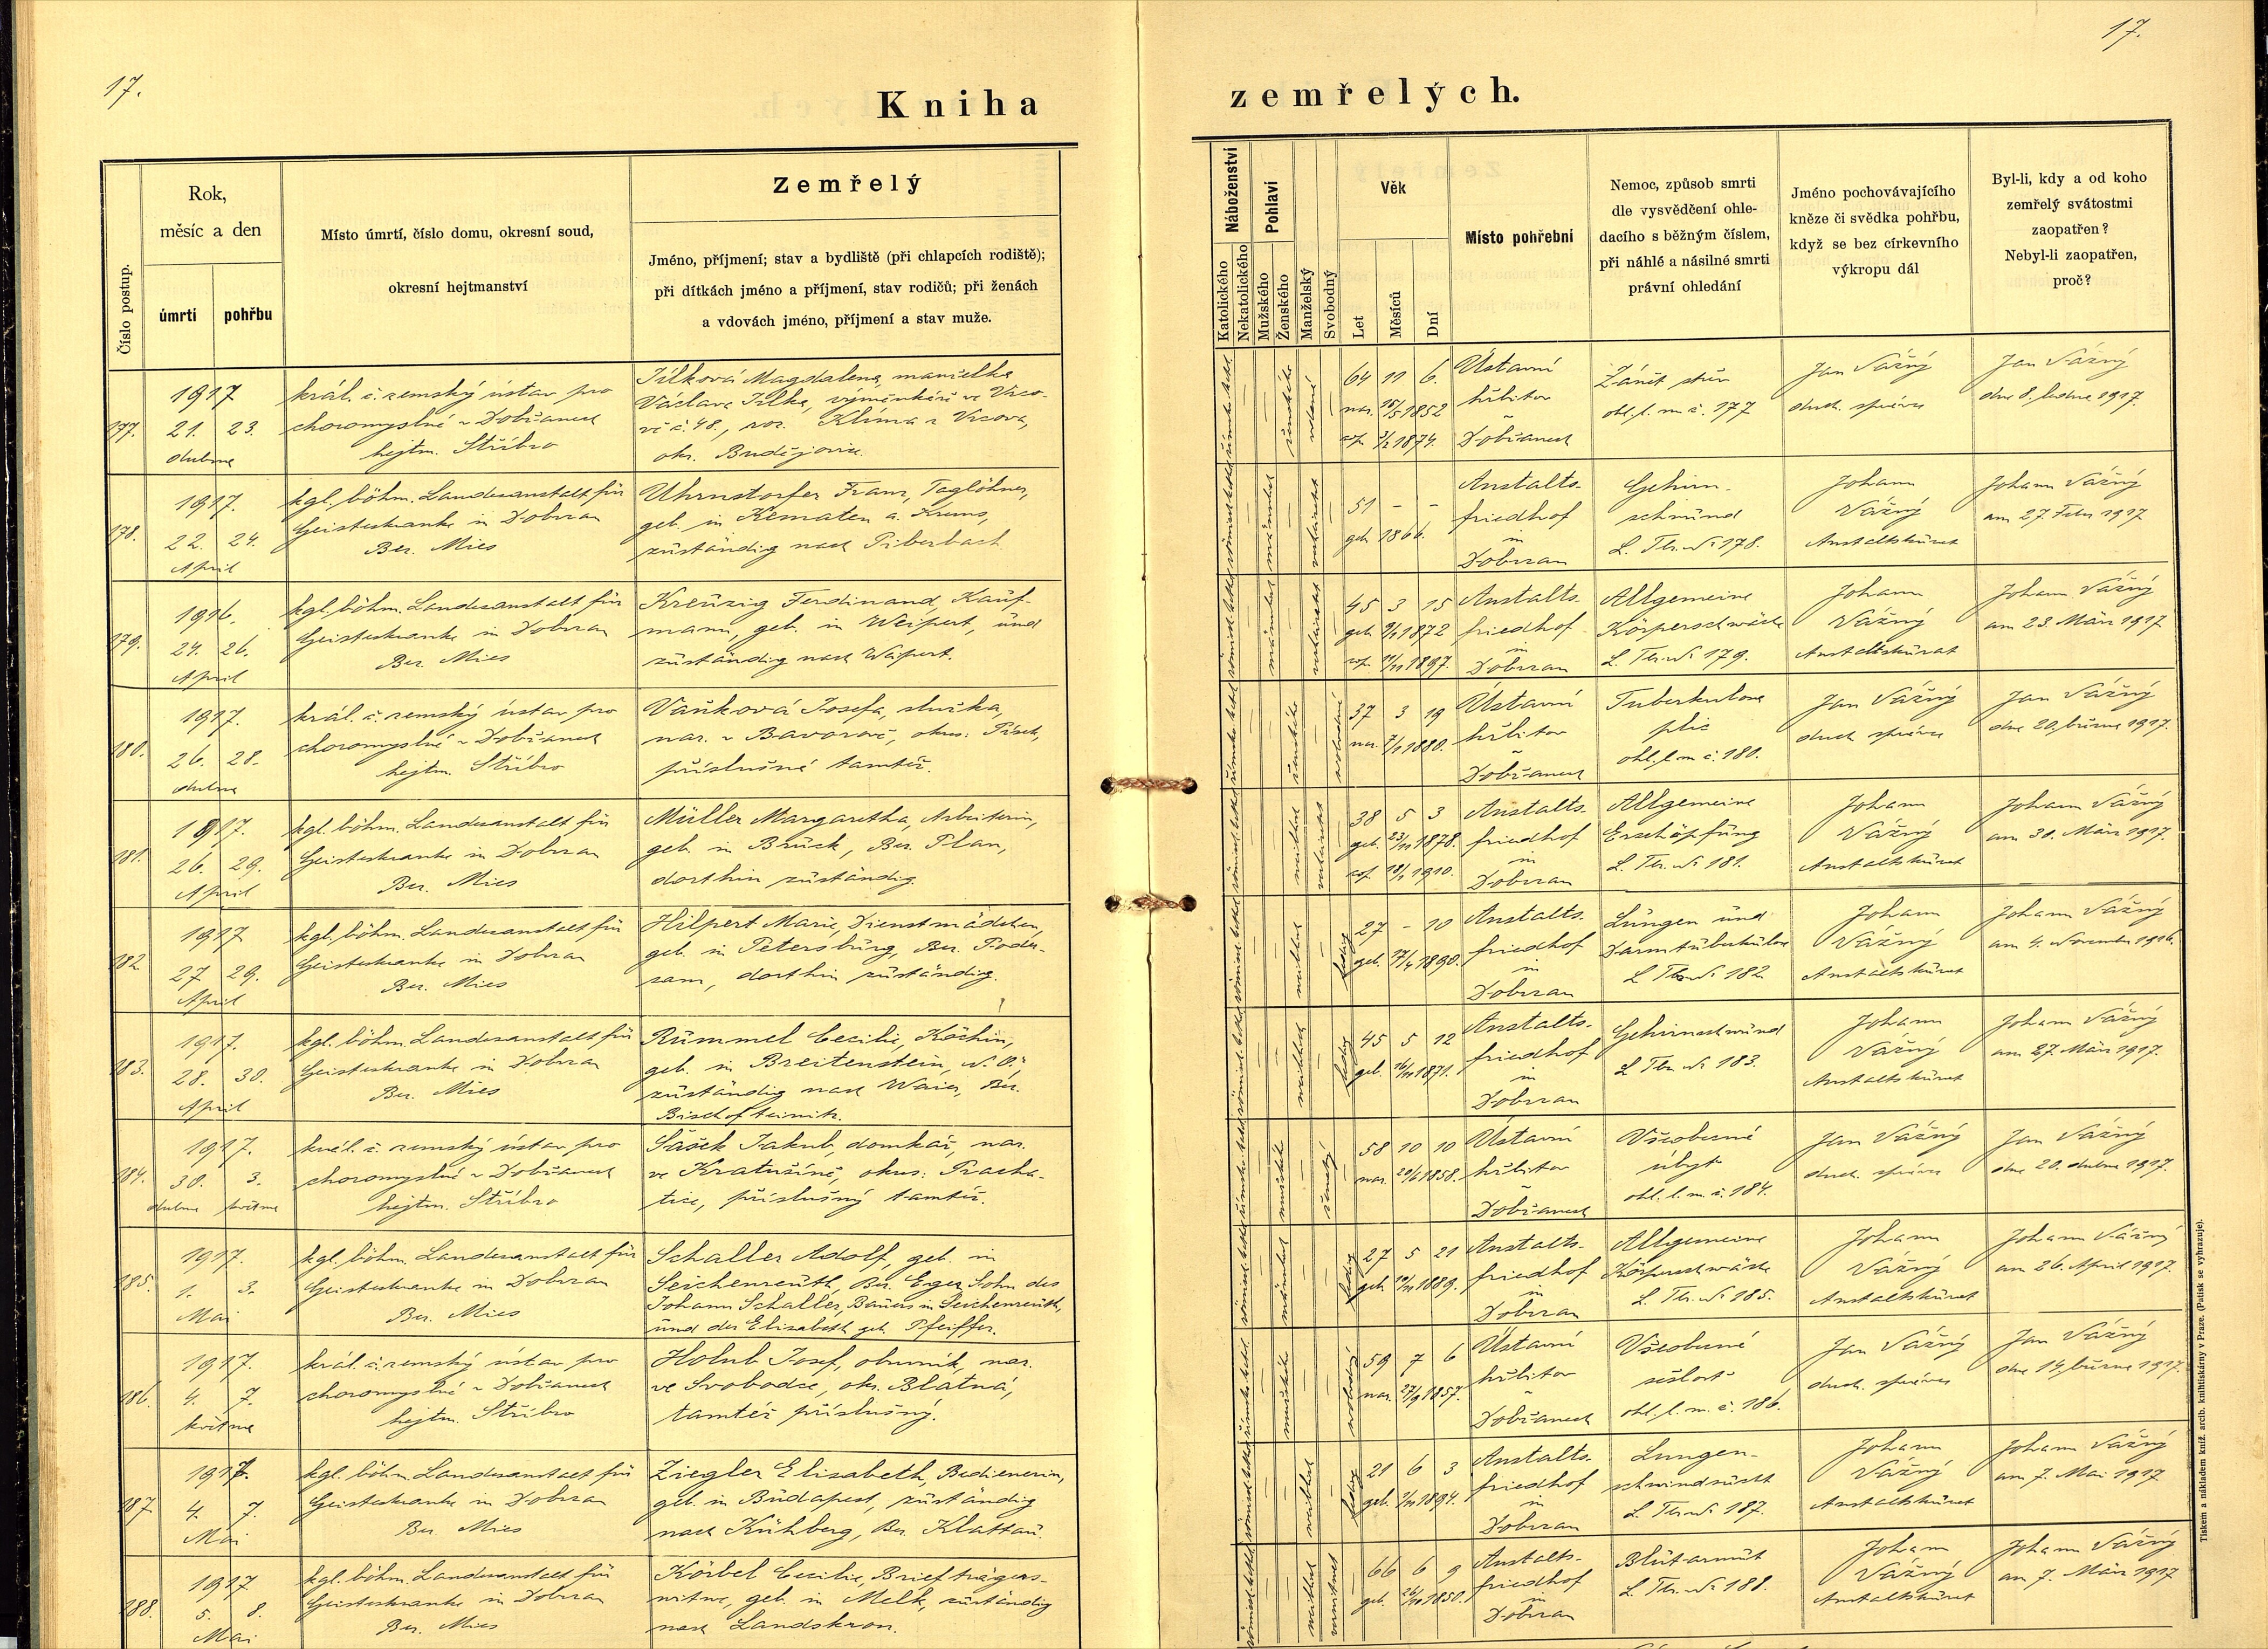 17.
17.
Kniha zemřelých.
Číslo postup.
Rok,
měsíc a den
úmrtí
pohřbu
Místo úmrtí, číslo domu, okresní soud,
okresní hejtmanství
Zemřelý
Jméno, příjmení; stav a bydliště (při chlapcích rodiště);
při dítkách jméno a příjmení, stav rodičů; při ženách
a vdovách jméno, příjmení a stav muže.
Náboženství
Katolického
Nekatolického
Pohlaví
Mužského
Ženského
Manželský
Svobodný
Věk
Let
Měsíců
Dní
Místo pohřební
Nemoc, způsob smrti
dle vysvědčení ohle-
dacího s běžným číslem,
při náhlé a násilné smrti
právní ohledání
Jméno pochovávajícího
kněze či svědka pohřbu,
když se bez církevního
výkropu dál
Byl-li, kdy a od koho
zemřelý svátostmi
zaopatřen?
Nebyl-li zaopatřen,
proč?
177.
1917
21. 23.
dubna
král. č. zemský ústav pro
choromyslné v Dobřanech
hejtm. Stříbro
Jílková Magdalena, manželka
Václava Jílka, výměnkáře ve Vrco-
vě č. 48., roz. Klíma z Vrcova,
okr. Budějovice.
ženského
vdaná
64 11 6.
nar. 15/5 1852
1874.
Ústavní
hřbitov
v
Dobřanech
Zánět střev
ohl. l. m. č. 177
Jan Vážný
duch. správce
Jan Vážný
dne 8. ledna 1917.
178.
1917.
22. 24.
April
kgl. böhm. Landesanstalt für
Geisteskranke in Dobrzan
Bez. Mies
Uhrnstorfer Franz, Taglöhner,
geb. in Kematen a. Krems,
zuständig nach Piberbach
männlich
verheiratet
51 - -
geb. 1866.
Anstalts-
friedhof
in
Dobrzan
Gehirn-
schwund
L. Tbr. № 178.
Johann
Vážný
Anstaltskurat
Johann Vážný
am 27. Febr. 1917
179.
1916.
24. 26.
April
kgl. böhm. Landesanstalt für
Geisteskranke in Dobrzan
Bez. Mies
Kreuzig Ferdinand, Kauf-
mann, geb. in Weipert, und
zuständig nach Weipert.
männlich
verheiratet
45 3 15
geb. 9/1 1872
1897.
Anstalts-
friedhof
in
Dobrzan
Allgemeine
Körperschwäche
L. Tbr. № 179.
Johann
Vážný
Anstaltskurat
Johann Vážný
am 23. März 1917
180.
1917.
26. 28.
dubna
král. č. zemský ústav pro
choromyslné v Dobřanech
hejtm. Stříbro
Vaňková Josefa, služka,
nar. v Bavorově, okres: Písek,
příslušná tamtéž.
ženského
svobodná
37 3 19
nar. 7/1 1880.
Ústavní
hřbitov
v
Dobřanech
Tuberkulosa
plic
ohl. l. m. č. 180.
Jan Vážný
duch. správce
Jan Vážný
dne 20. března 1917.
181.
1917.
26. 29.
April
kgl. böhm. Landesanstalt für
Geisteskranke in Dobrzan
Bez. Mies
Müller Margaretha, Arbeiterin,
geb. in Brück, Bez. Plan,
dorthin zuständig.
weiblich
verheiratet
38 5 3
geb. 23/11 1878.
1910.
Anstalts-
friedhof
in
Dobrzan
Allgemeine
Erschöpfung
L. Tbr. № 181.
Johann
Vážný
Anstaltskurat
Johann Vážný
am 30. März 1917.
182.
1917
27 29.
April
kgl. böhm. Landesanstalt für
Geisteskranke in Dobrzan
Bez. Mies
Hilpert Marie, Dienstmädchen,
geb. in Petersburg, Bez. Poder-
sam, dorthin zuständig.
weiblich
ledig
27 - 10
geb. 17/4 1890.
Anstalts-
friedhof
in
Dobrzan
Lungen und
Darmtuberkulose
L. Tbr. № 182.
Johann
Vážný
Anstaltskurat
Johann Vážný
am 4. November 1916.
183.
1917.
28. 30.
April
kgl. böhm. Landesanstalt für
Geisteskranke in Dobrzan
Bez. Mies
Rümmel Cecilie, Köchin,
geb. in Breitenstein, N. Ö.,
zuständig nach Waier, Bez.
Bischofteinitz.
weiblich
ledig
45 5 12
geb. 16/11 1871.
Anstalts-
friedhof
in
Dobrzan
Gehirnschwund
L. Tbr. № 183.
Johann
Vážný
Anstaltskurat
Johann Vážný
am 27. März 1917.
184.
1917.
30. 3.
dubna května
král. č. zemský ústav pro
choromyslné v Dobřanech
hejtm. Stříbro
Šášek Jakub, domkář, nar.
ve Kratušíně, okres: Pracha-
tice, příslušný tamtéž.
mužského
ženatý
58 10 10
nar. 20/6 1858.
Ústavní
hřbitov
v
Dobřanech
Všeobecné
úbytě
ohl. l. m. č. 184.
Jan Vážný
duch. správce
Jan Vážný
dne 20. dubna 1917.
185.
1917.
1. 3.
Mai
kgl. böhm. Landesanstalt für
Geisteskranke in Dobrzan
Bez. Mies
Schaller Adolf, geb. in
Seichenreuth, Bez. Eger, Sohn des
Johann Schaller, Bauers in Seichenreuth,
und der Elisabeth geb. Pfeiffer.
männlich
ledig
27 5 21
geb. 10/11 1889.
Anstalts-
friedhof
in
Dobrzan
Allgemeine
Körperschwäche
L. Tbr. № 185.
Johann
Vážný
Anstaltskurat
Johann Vážný
am 26. April 1917.
186.
1917.
4. 7.
května
král. č. zemský ústav pro
choromyslné v Dobřanech
hejtm. Stříbro
Holub Josef, obuvník, nar.
ve Svobodce, okr. Blatná,
tamtéž příslušný.
mužského
svobodný
59 7 6
nar. 27/9 1857.
Ústavní
hřbitov
v
Dobřanech
Všeobecná
sešlost
ohl. l. m. č. 186.
Jan Vážný
duch. správce
Jan Vážný
dne 14. března 1917.
187
1917.
4. 7.
Mai
kgl. böhm. Landesanstalt für
Geisteskranke in Dobrzan
Bez. Mies
Ziegler Elisabeth, Bedienerin,
geb. in Budapest, zuständig
nach Kühberg, Bez. Klattau.
weiblich
ledig
21 6 3
geb. 1894.
Anstalts-
friedhof
in
Dobrzan
Lungen-
schwindsucht
L. Tbr. № 187.
Johann
Vážný
Anstaltskurat
Johann Vážný
am 7. Mai 1917
188.
1917
5. 8.
Mai
kgl. böhm. Landesanstalt für
Geisteskranke in Dobrzan
Bez. Mies
Körbel Cecilie, Briefträgers-
witwe, geb. in Melk, zuständig
nach Landskron.
weiblich
verwitwet
66 6 9
geb. 26/10 1850.
Anstalts-
friedhof
in
Dobrzan
Blutarmut
L. Tbr. № 188.
Johann
Vážný
Anstaltskurat
Johann Vážný
am 7. März 1917
Tiskem a nákladem kníž. arcib. knihtiskárny v Praze. (Patisk se vyhrazuje).